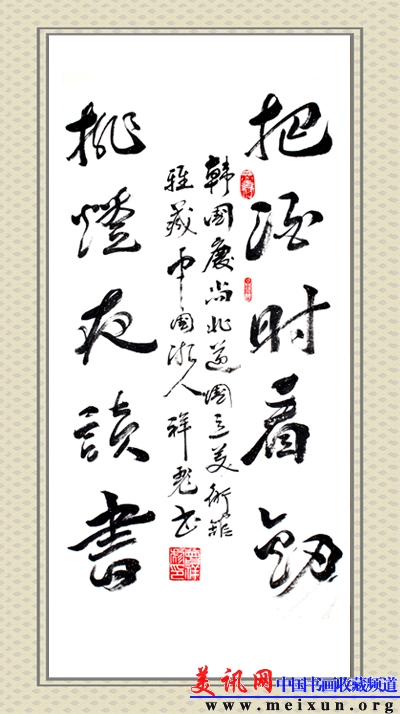 把酒时看劒
韩国庆尚北道国立美術館
雅藏中国浙人祥彪书
挑燈夜讀書
美讯网中国书画收藏频道
www.meixun.org